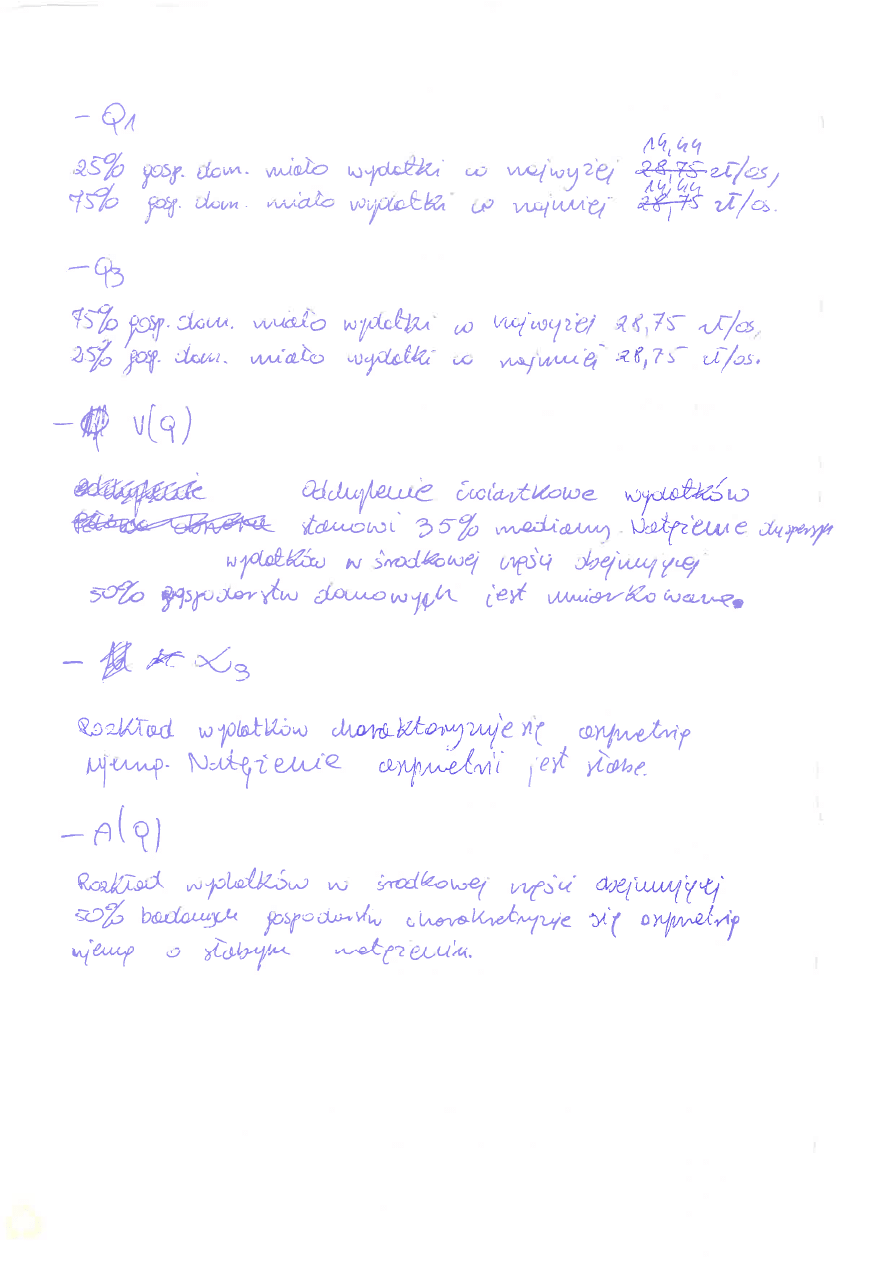 - Q1
14,44
25% gosp. dom. miało wydatki co najwyżej 28,75 zł/os,
14,44
75% gosp. dom. miało wydatki co najmniej 28,75 zł/os.
- Q3
75% gosp. dom. miało wydatki co najwyżej 28,75 zł/os,
25% gosp. dom. miało wydatki co najmniej 28,75 zł/os.
- V(Q)
Odchylenie ćwiartkowe wydatków
stanowi 35% mediany. Natężenie dyspersji
wydatków w środkowej części obejmującej
50% gospodarstw domowych jest umiarkowane.
- α3
Rozkład wydatków charakteryzuje się asymetrią
ujemną. Natężenie asymetrii jest słabe.
- A(Q)
Rozkład wydatków w środkowej części obejmującej
50% badanych gospodarstw charakretryzuje się asymetrią
ujemną o słabym natężeniu.